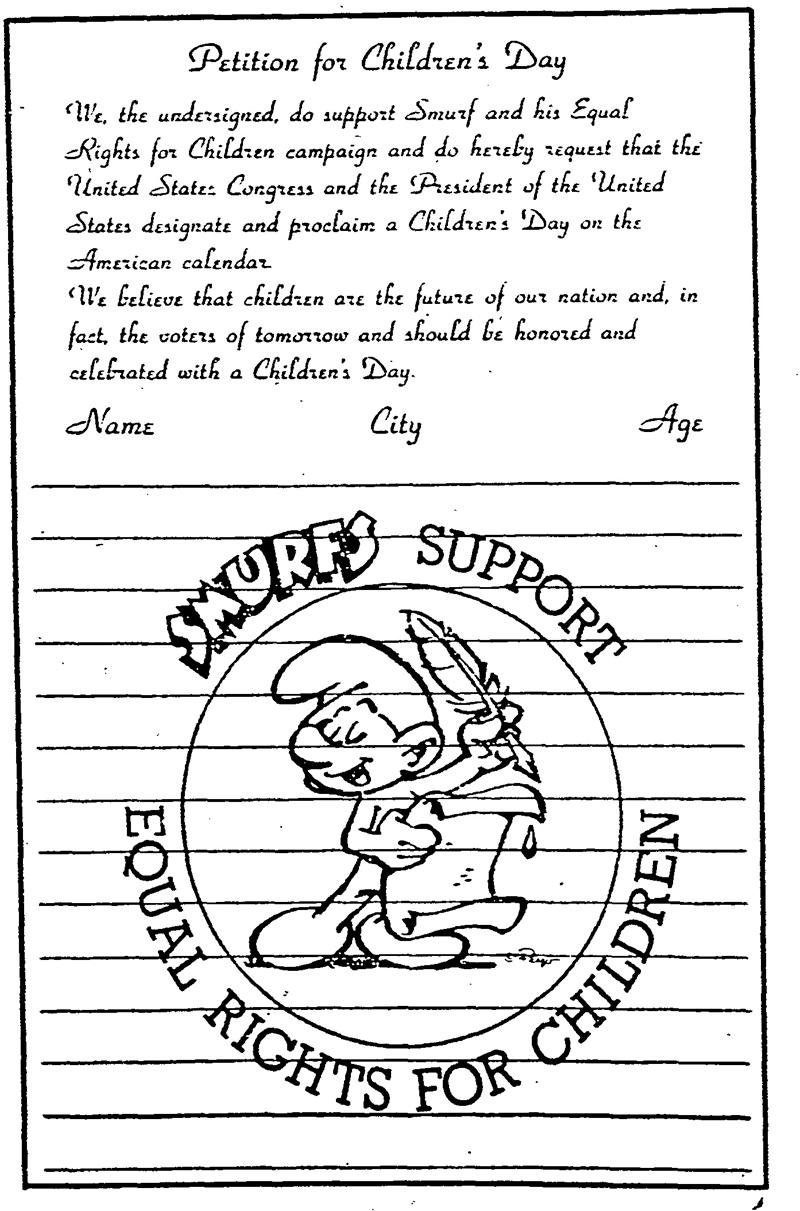 Petition for Children's Day
We, the undersigned, do support Smurf and his Equal
Rights for Children campaign and do hereby request that the
United States Congress and the President of the United
States designate and proclaim a Children's Day on the
American calendar
We believe that children are the future of our nation and, in
fact, the voters of tomorrow and should be honored and
celebrated with a Children's Day.
Name City Age
SMURFS SUPPORT
EQUAL RIGHTS FOR CHILDREN
Peyo